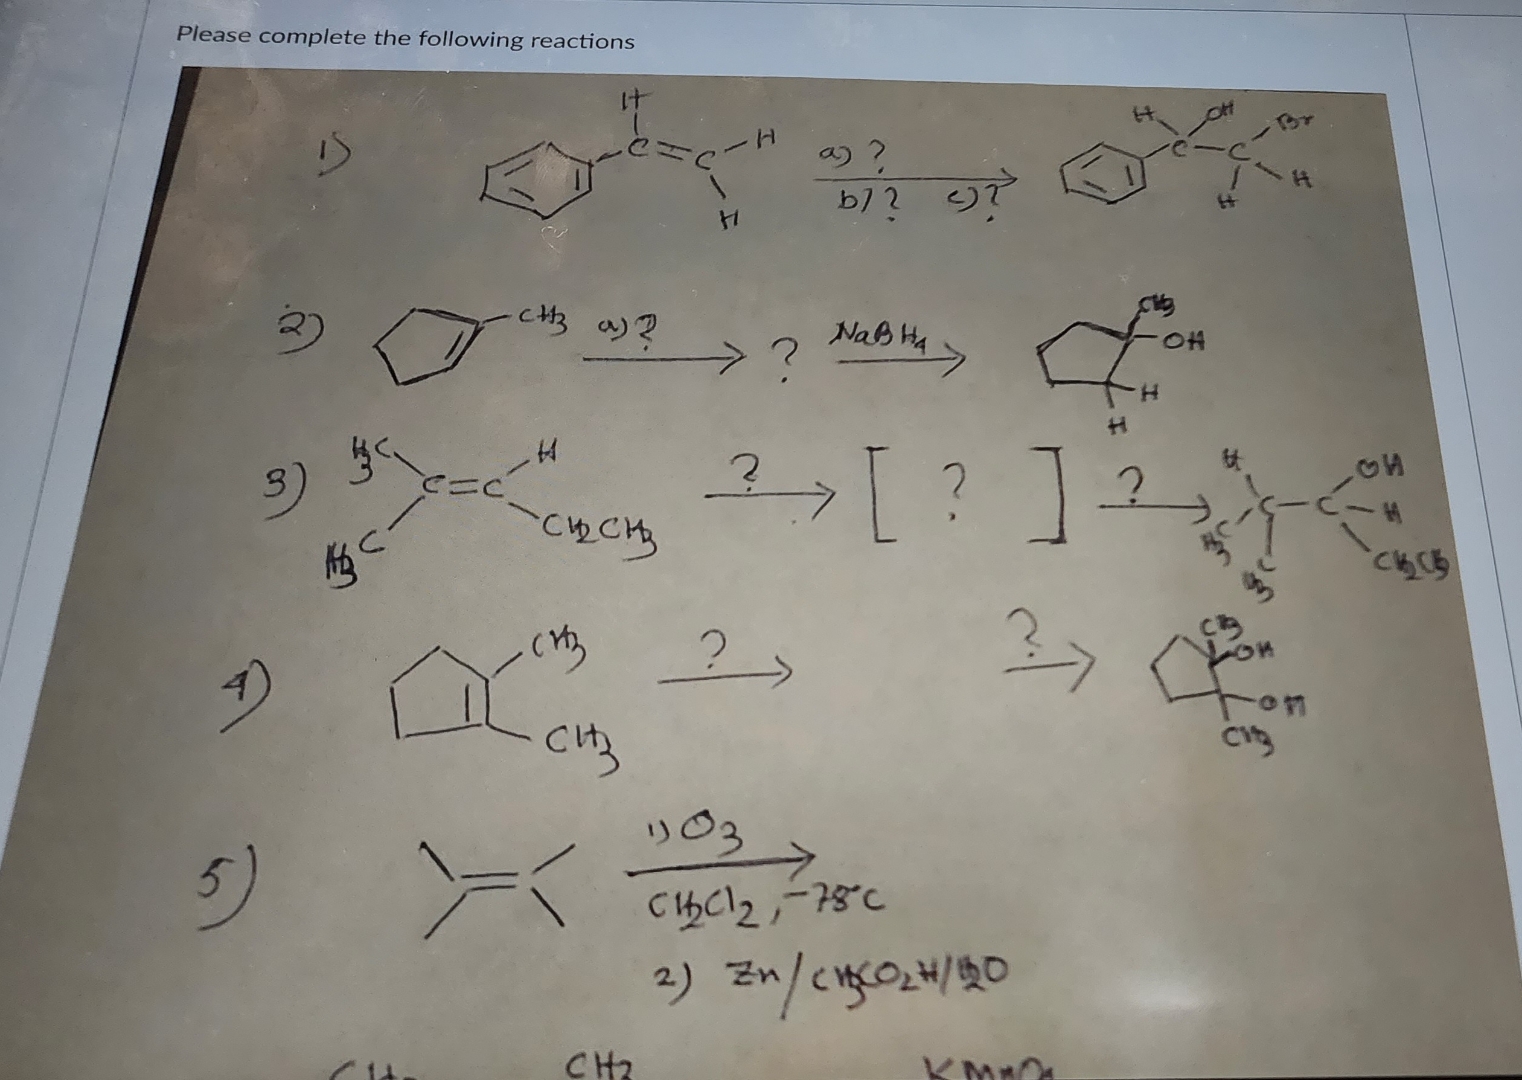 Please complete the following reactions
1)
H
C=C
H
H
a) ?
b) ? c) ?
H
OH
Br
C-C
H
H
2)
CH3
a) ?
?
NaBH4
CH3
OH
H
H
3)
H3C
H
C=C
H3C
CH2CH3
?
[ ? ]
?
H
OH
C-C
H
H3C
H3C
CH2CH3
4)
CH3
CH3
?
?
CH3
OH
OH
CH3
5)
1) O3
CH2Cl2, -78°C
2) Zn/CH3CO2H/H2O
CH3